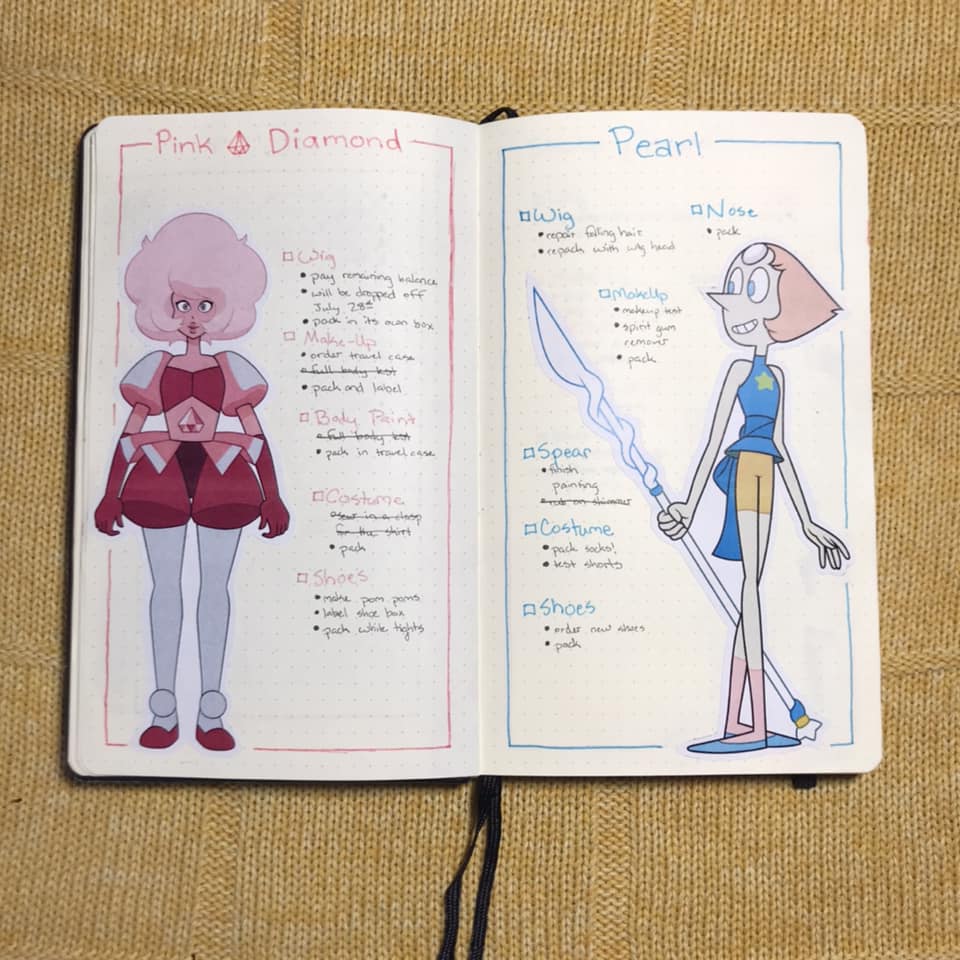 Pink Diamond
Wig
pay remaining balance
will be dropped off
July 28th
pack in its own box
Make-Up
order travel case
full body test
pack and label
Body Paint
full body test
pack in travel case
Costume
sew in a clasp
for the shirt
pack
Shoes
make pom poms
label shoe box
pack white tights
Pearl
Wig
repair falling hair
repack with wig head
Nose
pack
Makeup
makeup test
spirit gum
remover
pack
Spear
finish
painting
rub on shimmer
Costume
pack socks!
test shorts
Shoes
order new shoes
pack